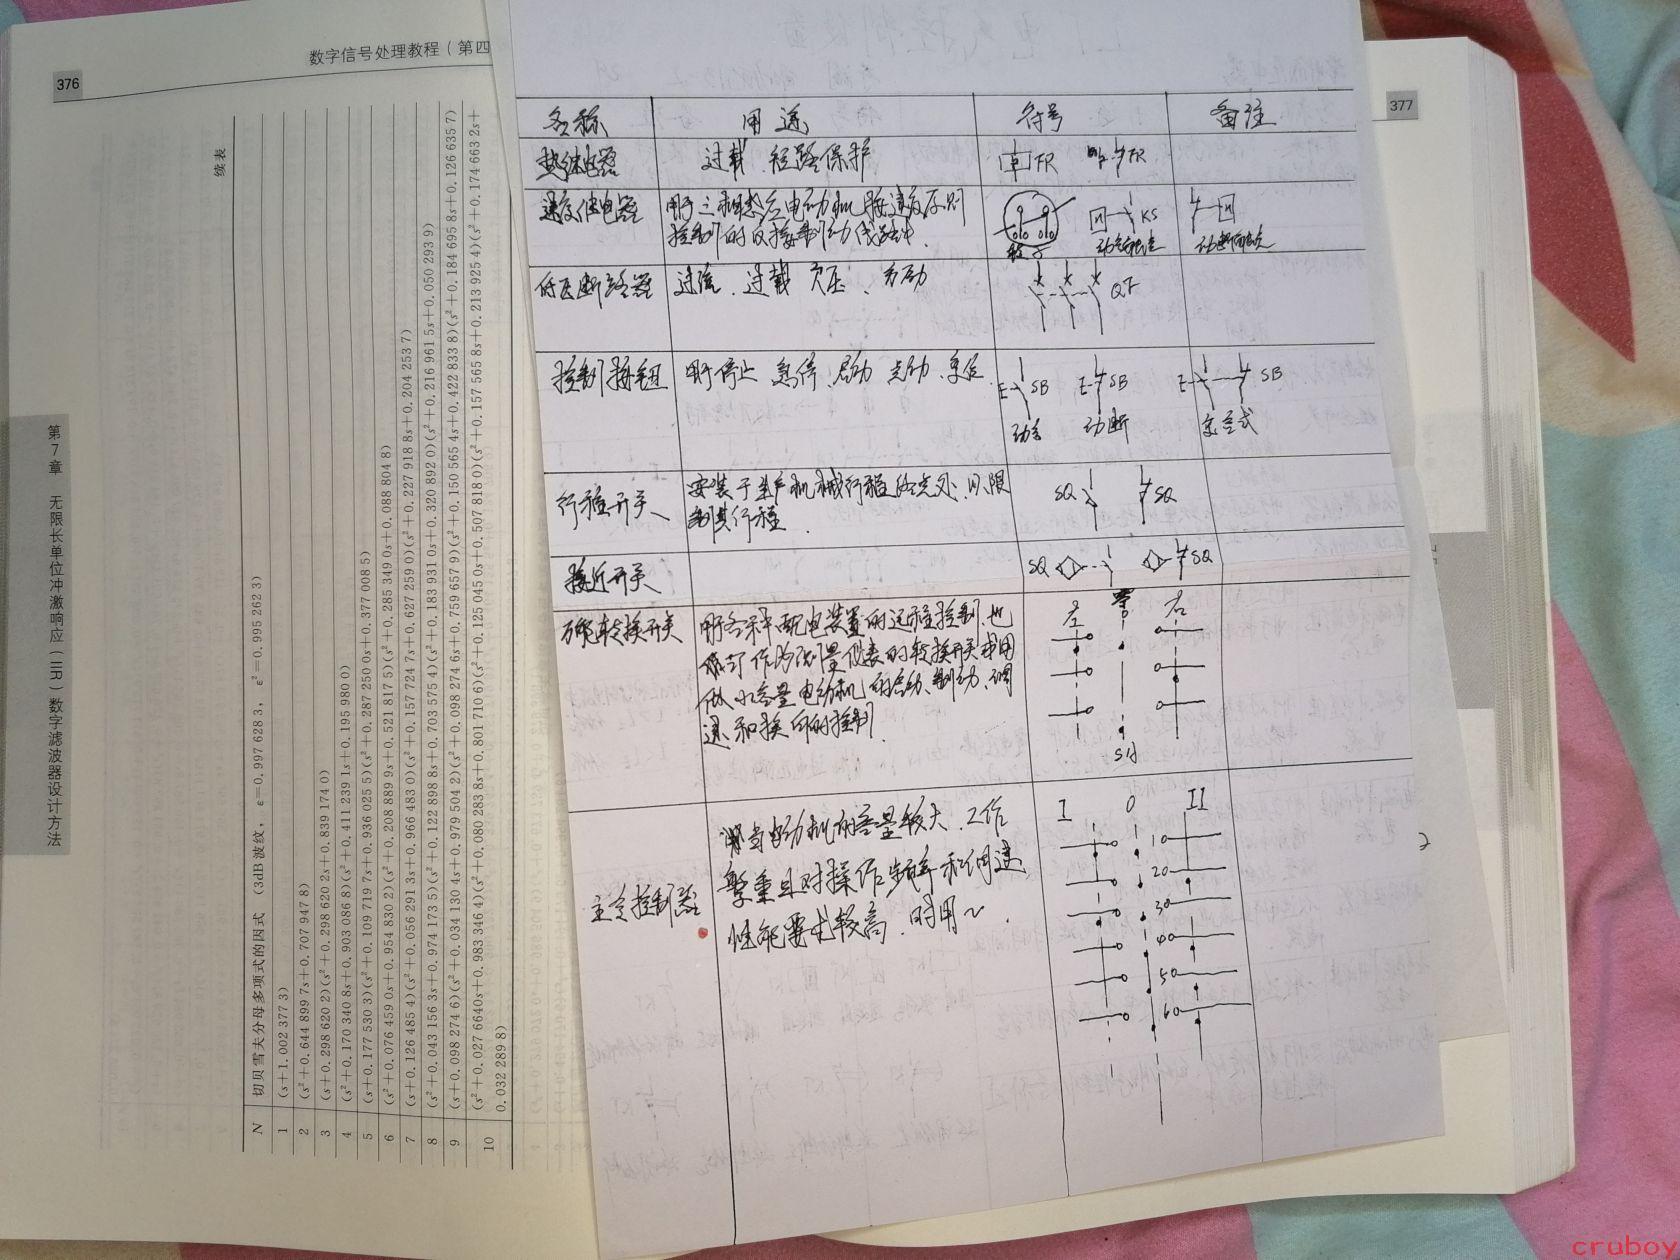 376
数字信号处理教程(第四
续表
N 切贝雪夫分母多项式的因式 (3dB波纹, ε=0.997 628 3, ε²=0.995 262 3)
1 (s+1.002 377 3)
2 (s²+0.644 899 7s+0.707 947 8)
3 (s+0.298 620 2)(s²+0.298 620 2s+0.839 174 0)
4 (s²+0.170 340 8s+0.903 086 8)(s²+0.411 239 1s+0.195 980 0)
5 (s+0.177 530 3)(s²+0.109 719 7s+0.936 025 5)(s²+0.287 250 0s+0.377 008 5)
6 (s²+0.076 459 0s+0.954 830 2)(s²+0.208 889 9s+0.521 817 5)(s²+0.285 349 0s+0.088 804 8)
7 (s+0.126 485 4)(s²+0.056 291 3s+0.966 483 0)(s²+0.157 724 7s+0.627 259 0)(s²+0.227 918 8s+0.204 253 7)
8 (s²+0.043 156 3s+0.974 173 5)(s²+0.122 898 8s+0.703 575 4)(s²+0.183 931 0s+0.320 892 0)(s²+0.216 961 5s+0.050 293 9)
9 (s+0.098 274 6)(s²+0.034 130 4s+0.979 504 2)(s²+0.098 274 6s+0.759 657 9)(s²+0.150 565 4s+0.422 833 8)(s²+0.184 695 8s+0.126 635 7)
10 (s²+0.027 6640s+0.983 346 4)(s²+0.080 283 8s+0.801 710 6)(s²+0.125 045 0s+0.507 818 0)(s²+0.157 565 8s+0.213 925 4)(s²+0.174 663 2s+
0.032 289 8)
第7章 无限长单位冲激响应(IIR)数字滤波器设计方法
377
名称 用途 符号 备注
热继电器 过载、短路保护 FR FR
速度继电器 用于三相感应电动机按速度原则
控制的反接制动线路中.
转子 KS 动合触点 动断触点
低压断路器 过流、过载 欠压、 QF
控制按钮 用于停止 急停、启动 点动、复位
E SB E SB E SB
动合 动断 复合式
行程开关 安装于生产机械行程终点处、以限
制其行程. SQ SQ
接近开关 SQ SQ
万能转换开关 用于各种配电装置的远程控制、也
可作为测量仪表的转换开关或用
做小容量电动机的启动、制动、调
速和换向的控制.
左 零 右
SA
主令控制器 用当电动机的容量较大、工作
繁重且对操作频率和调速
性能要求较高.时用~.
I 0 II
10
20
30
40
50
60
2
cruboy